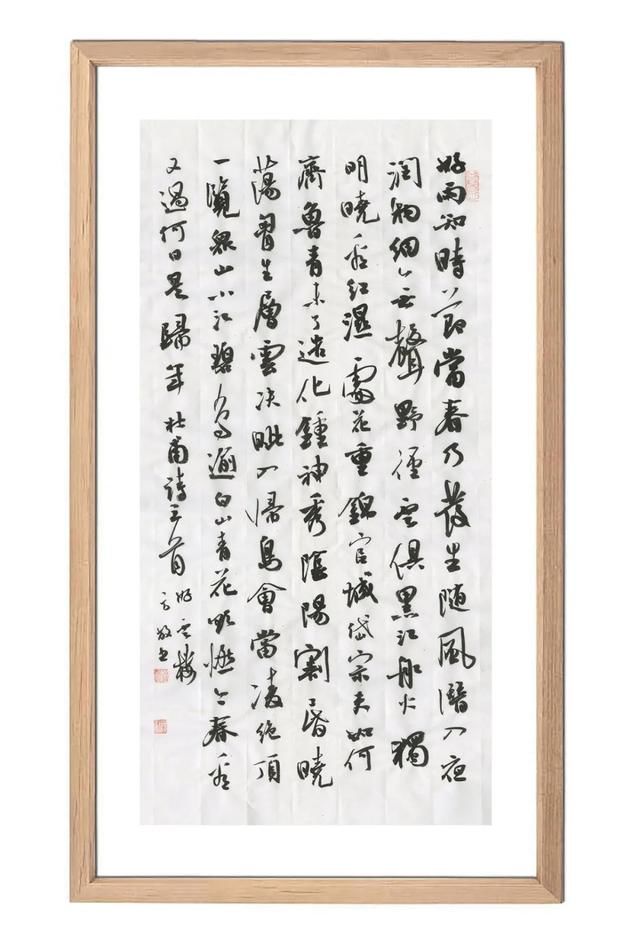 好雨知時節當春乃發生随風潛入夜
潤物細無聲野徑雲俱黑江船火獨
明曉看紅濕處花重錦官城岱宗夫如何
齊魯青未了造化鍾神秀陰陽割昏曉
蕩胷生層雲决眥入歸鳥會當凌絕頂
一覽眾山小江碧鳥逾白山青花欲燃今春看
又過何日是歸年 杜甫詩三首
好雲樓